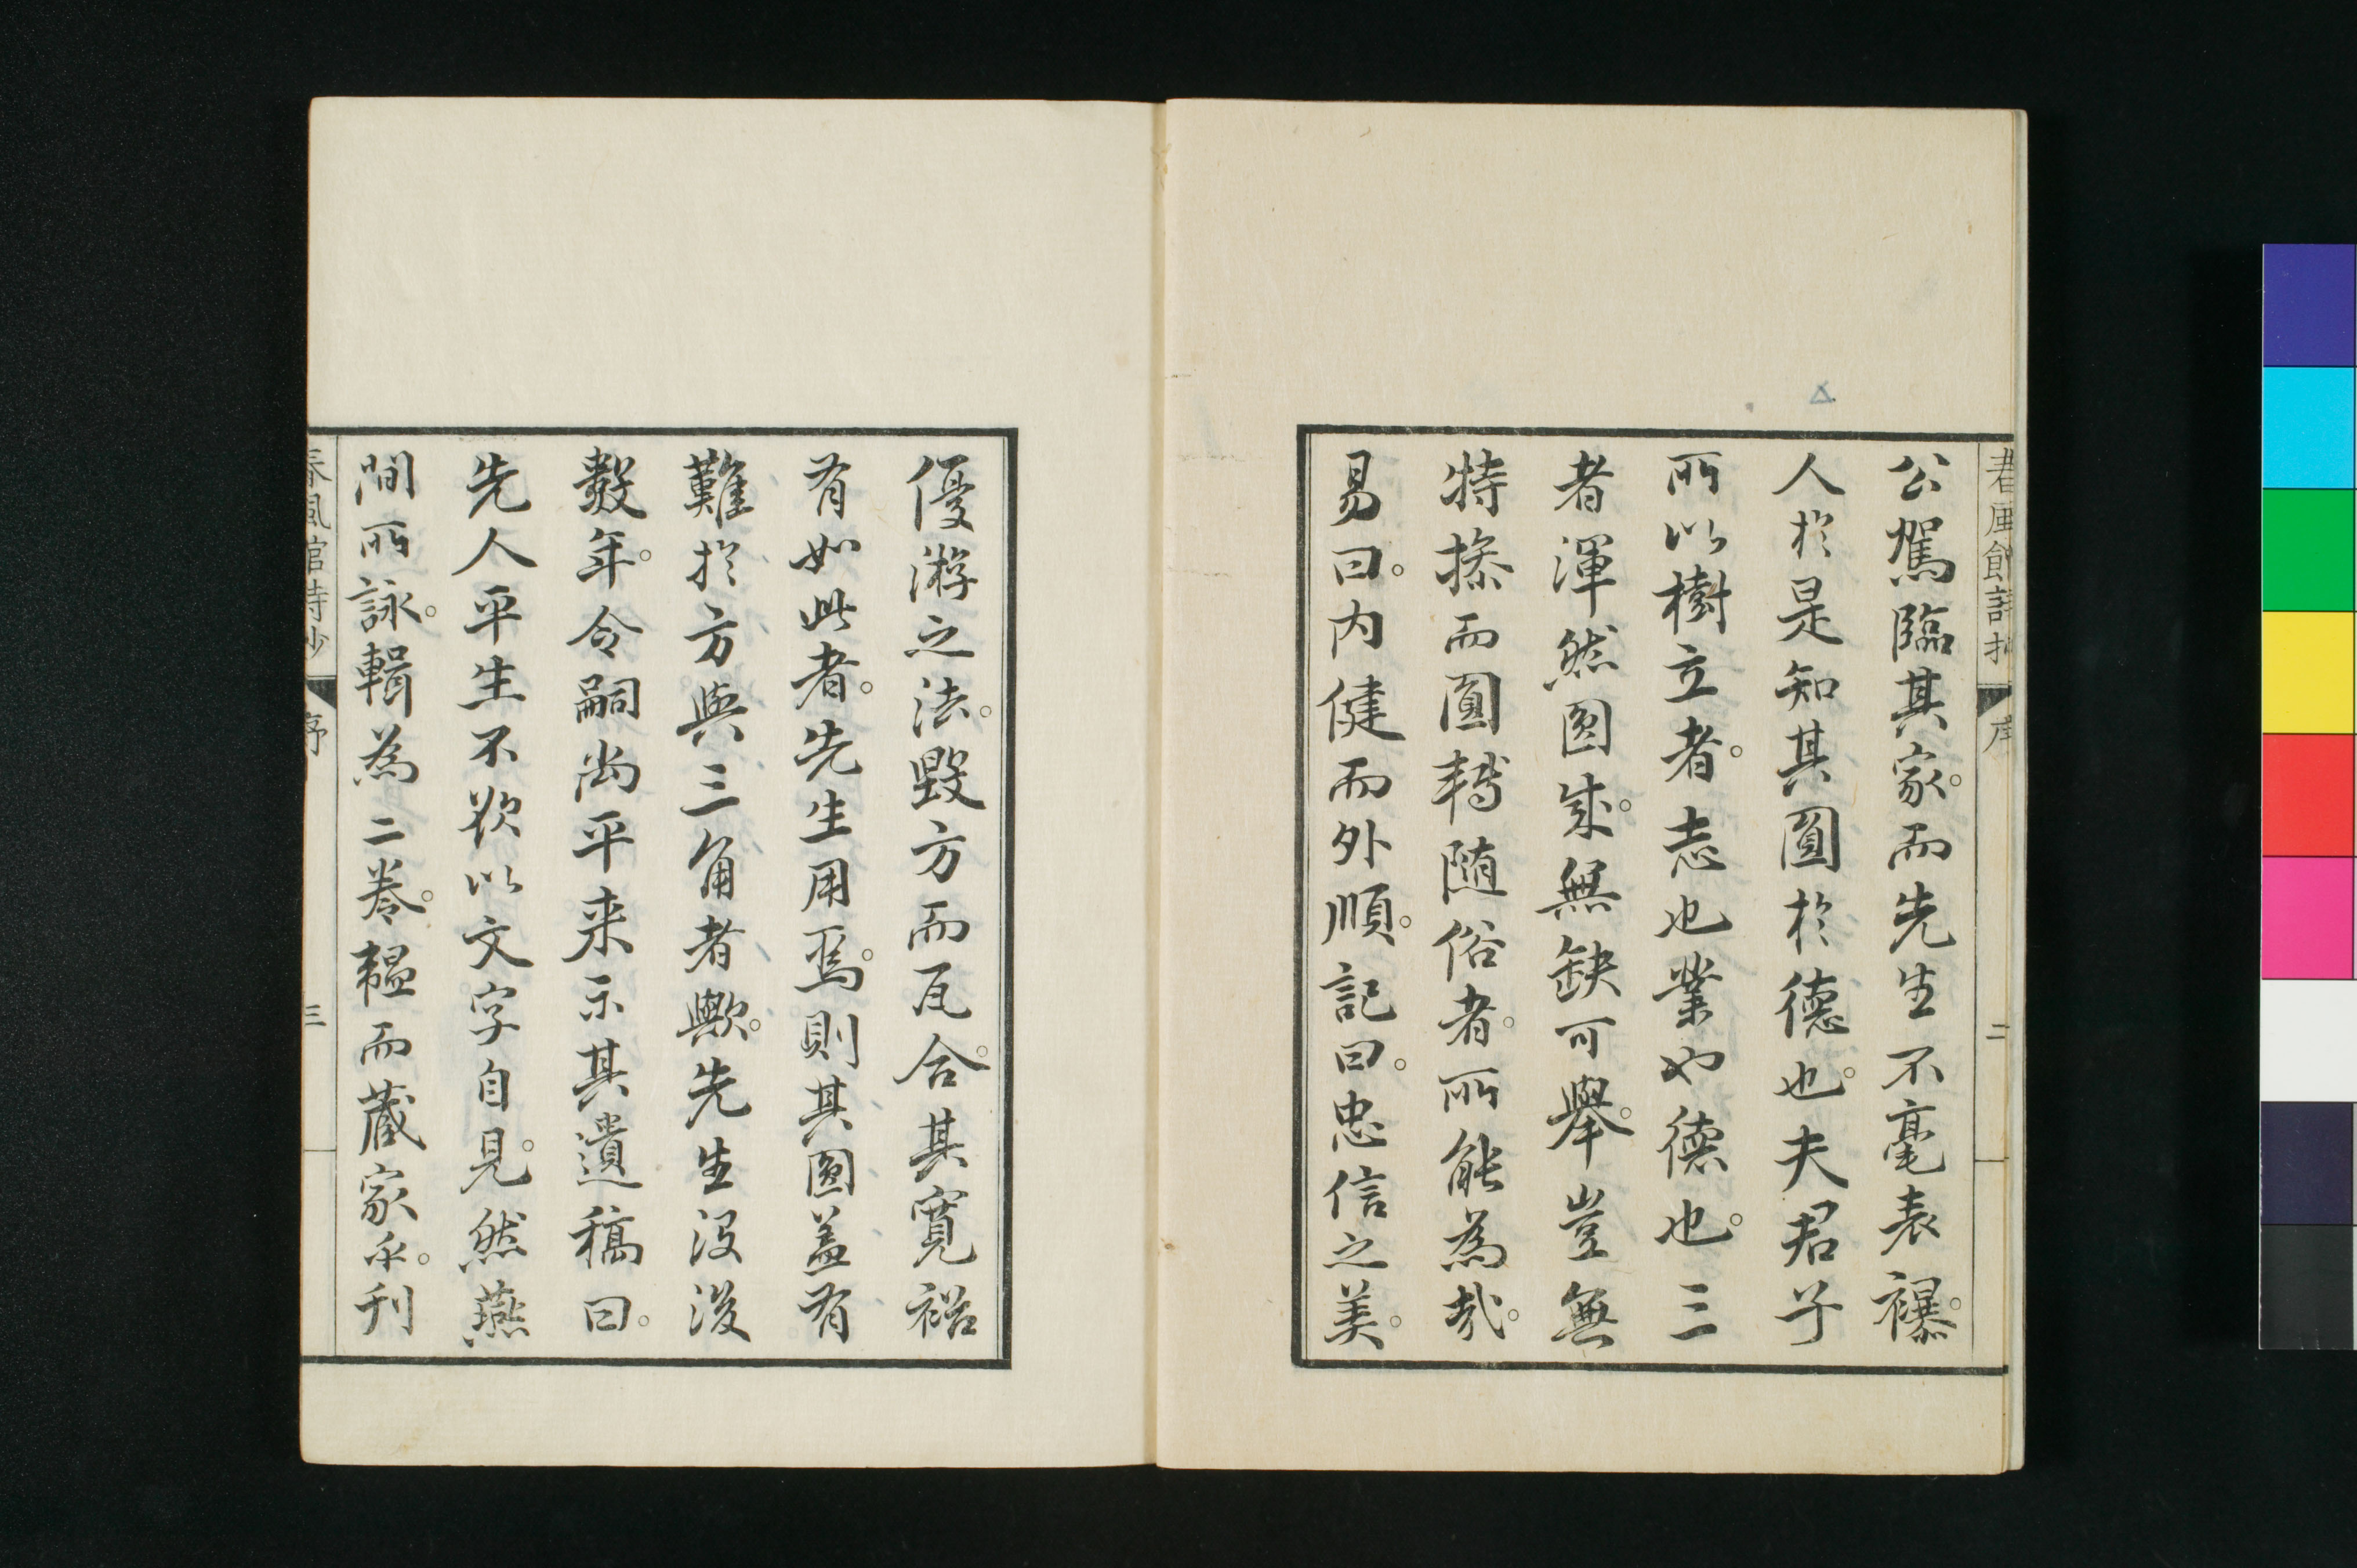 公駕臨其家。而先生不毫表襮。
人於是知其圓於德也。夫君子
所以樹立者。志也業也德也。三
者渾然圓成。無缺可舉。豈無
特操而圓轉随俗者。所能為哉。
易曰。内健而外順。記曰。忠信之美。
優游之法。毀方而瓦合。其寬裕
有如此者。先生用焉。則其圓蓋有
難於方與三角者歟。先生没後
數年。令嗣尚平来示其遺稿曰。
先人平生不欲以文字自見。然燕
間所詠。輯為二卷。韞而蔵家乎。刊
春風館詩抄
序
二
春風館詩抄
序
三